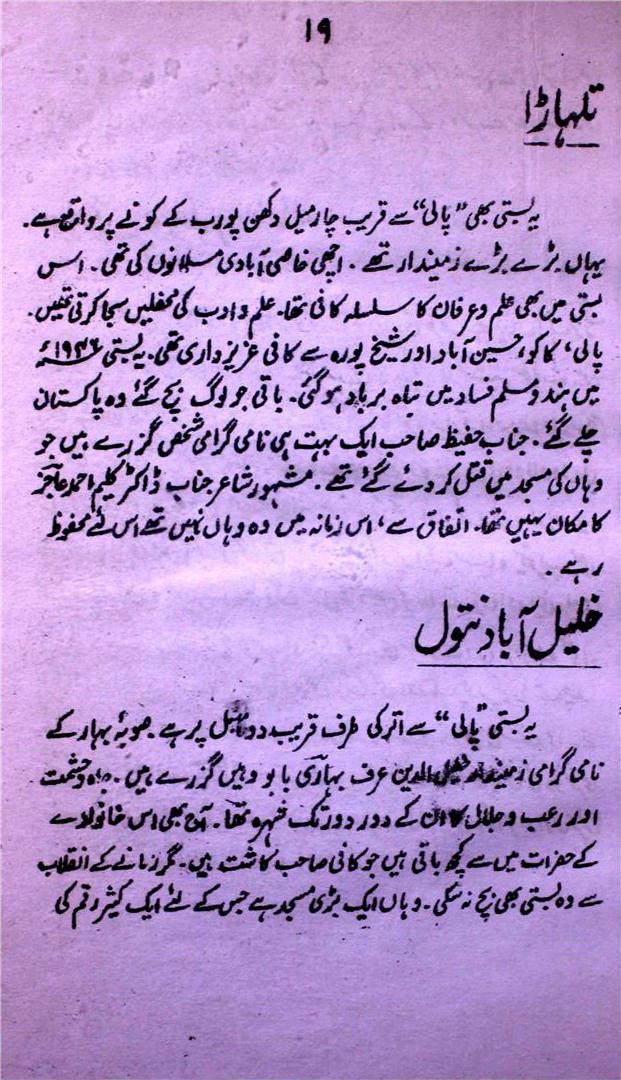 ۱۹
تلہاڑا
یہ بستی بھی "پالی" سے قریب چار میل دکھن پورب کے کونے پر واقع ہے۔
یہاں بڑے بڑے زمیندار تھے۔ اچھی خاصی آبادی مسلمانوں کی تھی۔ اس
بستی میں بھی علم و عرفان کا سلسلہ کافی تھا۔ علم و ادب کی محفلیں سجا کرتی تھیں۔
پالی، کاکو، حسین آباد اور شیخ پورہ سے کافی عزیز داری تھی۔ یہ بستی ۱۹۴۶ء
میں ہندو مسلم فساد میں تباہ برباد ہو گئی۔ باقی جو لوگ بچ گئے وہ پاکستان
چلے گئے۔ جناب حفیظ صاحب ایک بہت ہی نامی گرامی شخص گزرے ہیں جو
وہاں کی مسجد میں قتل کر دئے گئے تھے۔ مشہور شاعر جناب ڈاکٹر کلیم احمد عاجز
کا مکان یہیں تھا۔ اتفاق سے، اس زمانہ میں وہ وہاں نہیں تھے اس لئے محفوظ
رہے۔
خلیل آباد نتول
یہ بستی "پالی" سے اتر کی طرف قریب دو میل پر ہے۔ صوبۂ بہار کے
نامی گرامی زمیندار الدین عرف بہاری بابو وہیں گزرے ہیں۔ جاہ و حشمت
اور رعب و جلال کا ان کے دور دور تک شہرہ تھا۔ آج بھی اس خانوادے
کے حضرات میں سے کچھ باقی ہیں جو کافی صاحب کاشت ہیں۔ مگر زمانے کے انقلاب
سے وہ بستی بھی بچ نہ سکی۔ وہاں ایک بڑی مسجد ہے جس کے لئے ایک کثیر رقم کی